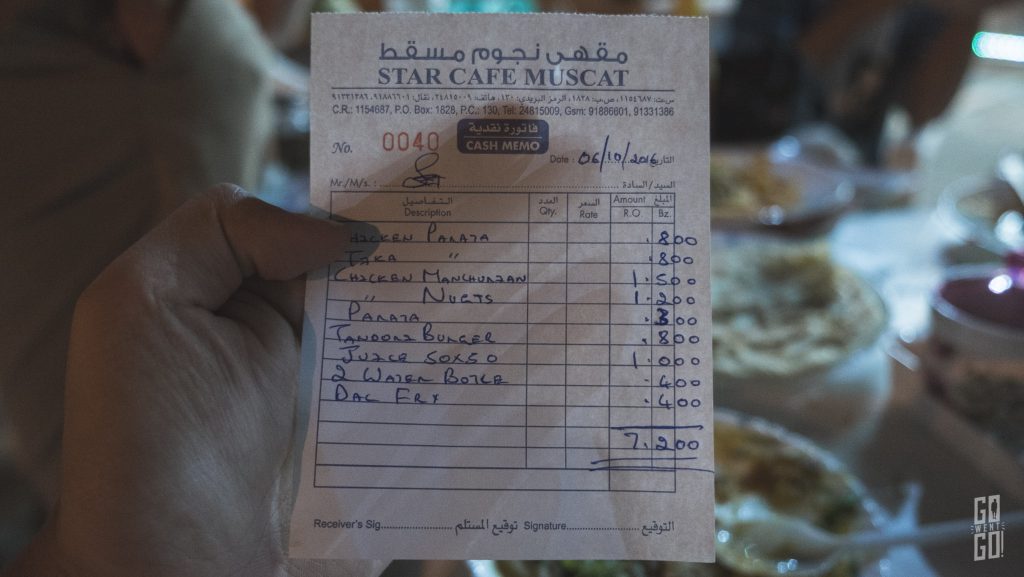 مقهى نجوم مسقط
STAR CAFE MUSCAT
س.ت: ١١٥٤٦٨٧، ص.ب: ١٨٢٨، الرمز البريدي: ١٣٠، هاتف: ٢٤٨١٥٠٠٩، نقال: ٩١٨٨٦٦٠١، ٩١٣٣١٣٨٦
C.R.: 1154687, P.O. Box: 1828, P.C.: 130, Tel: 24815009, Gsm: 91886601, 91331386
No. 0040 فاتورة نقدية
CASH MEMO
Date : 06/10/2016 التاريخ
Mr./M/s. : السيد/السادة
التفاصيل العدد السعر Amount المبلغ
Description Qty. Rate R.O. Bz.
CHICKEN PARATA .800
" .800
CHICKEN MANCHURIAN 1.500
" NUGTS 1.200
PARATA .300
TANDORI BURGER .800
JUICE 50X50 1.000
2 WATER BOTLE .400
DAL FRY .400
7.200
Receiver's Sig. توقيع المستلم Signature التوقيع
GO
WENT
GO!